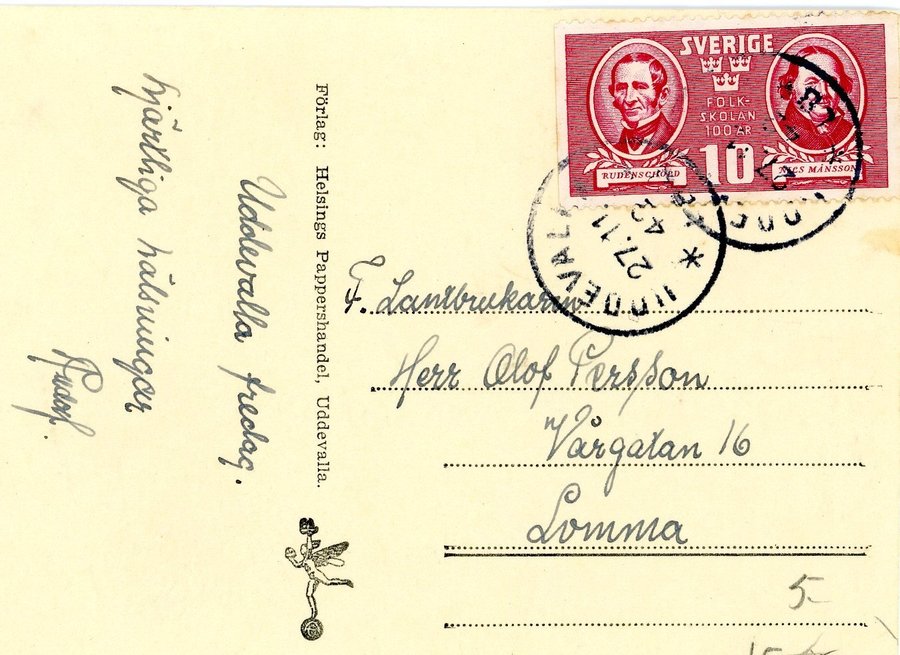 Uddevalla fredag.
Hjärtliga hälsningar
Förlag: Helsings Pappershandel, Uddevalla.
SVERIGE
FOLK-
SKOLAN
100 ÅR
10
RUDENSCHÖLD
NILS MÅNSSON
UDDEVALLA
27.11.
42
F. Lantbrukaren
Herr Olof Persson
Vårgatan 16
Lomma
5-